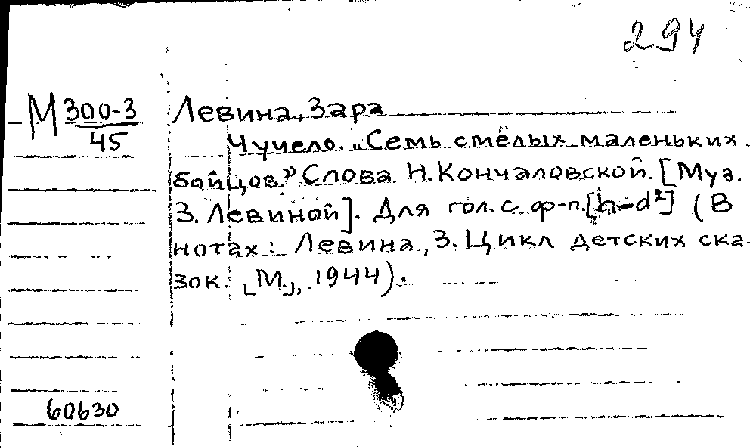 294
М 300-3
45
Левина, Зара
Чучело. „Семь смелых маленьких
бойцов" Слова Н. Кончаловской. [Муз.
З. Левиной]. Для гол. с. ф-п. [h-d²] (В
нотах: Левина, З. Цикл детских ска-
зок. [М.], 1944).
60630